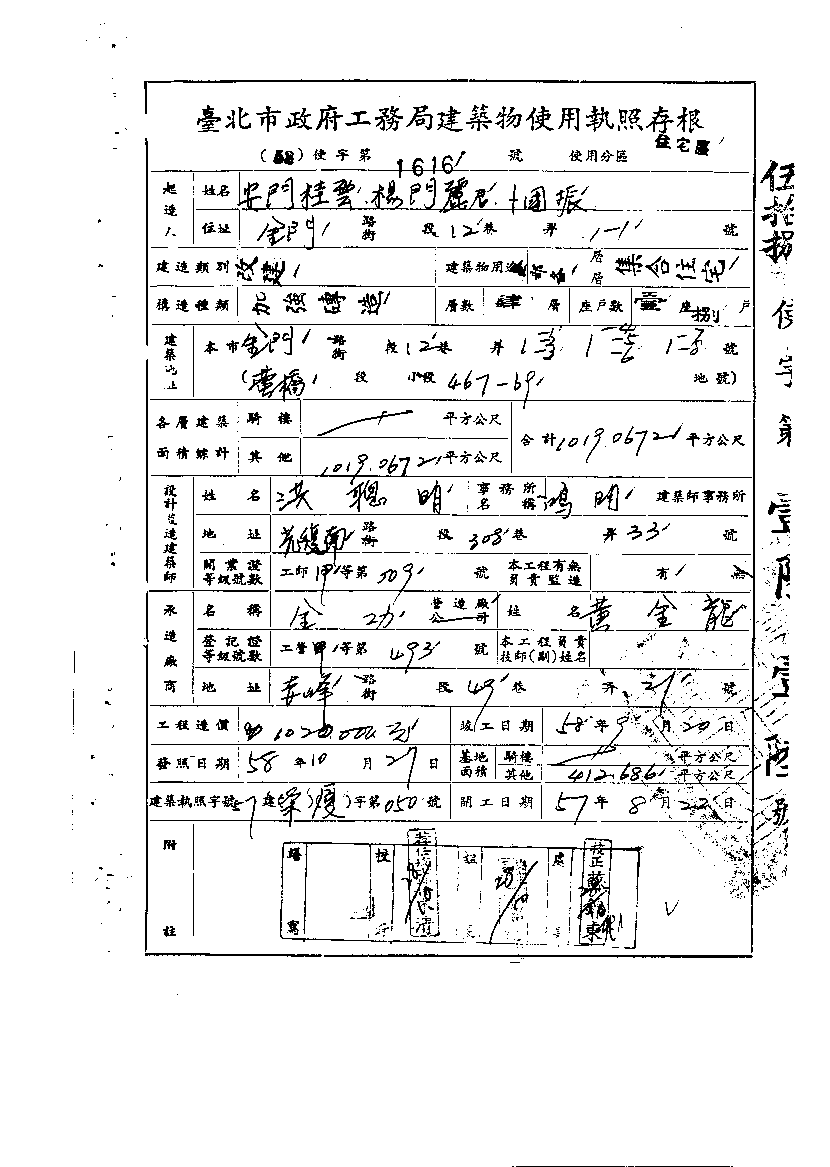 臺北市政府工務局建築物使用執照存根
(58)使字第 1616 號 使用分區 住宅區
起造人 姓名 安門桂雲 楊門麗君 卞國振
住址 金門 路街 段 12 巷 弄 1-1 號
建造類別 改建 建築物用途 層 層 集合住宅
構造種類 加強磚造 層數 肆 層 座戶數 壹 座 捌 戶
建築地址 本市 金門 路街 段 12 巷 弄 號
( 段 小段 467-69 地號)
各層建築面積總計 騎樓 平方公尺 合計 1019.0672 平方公尺
其他 1019.0672 平方公尺
設計監造建築師 姓名 洪聰明 事務所名稱 鴻明 建築師事務所
地址 光復南 路街 段 308 巷 弄 33 號
開業證等級號數 工師 甲 等第 509 號 本工程有無負責監造 有 無
承造廠商 名稱 金功 營造廠公司 姓名 黃金龍
登記證等級號數 工營 甲 等第 493 號 本工程負責技師(副)姓名
地址 路街 段 49 巷 弄 21 號
工程造價 1020,000元 竣工日期 58 年 9 月 20 日
發照日期 58 年 10 月 27 日 基地面積 騎樓 平方公尺
其他 412.686 平方公尺
建築執照字號 57 建 ( ) 字第 050 號 開工日期 57 年 8 月 22 日
附註 繕寫 校正
伍拾捌 使字第 壹陸壹陸號